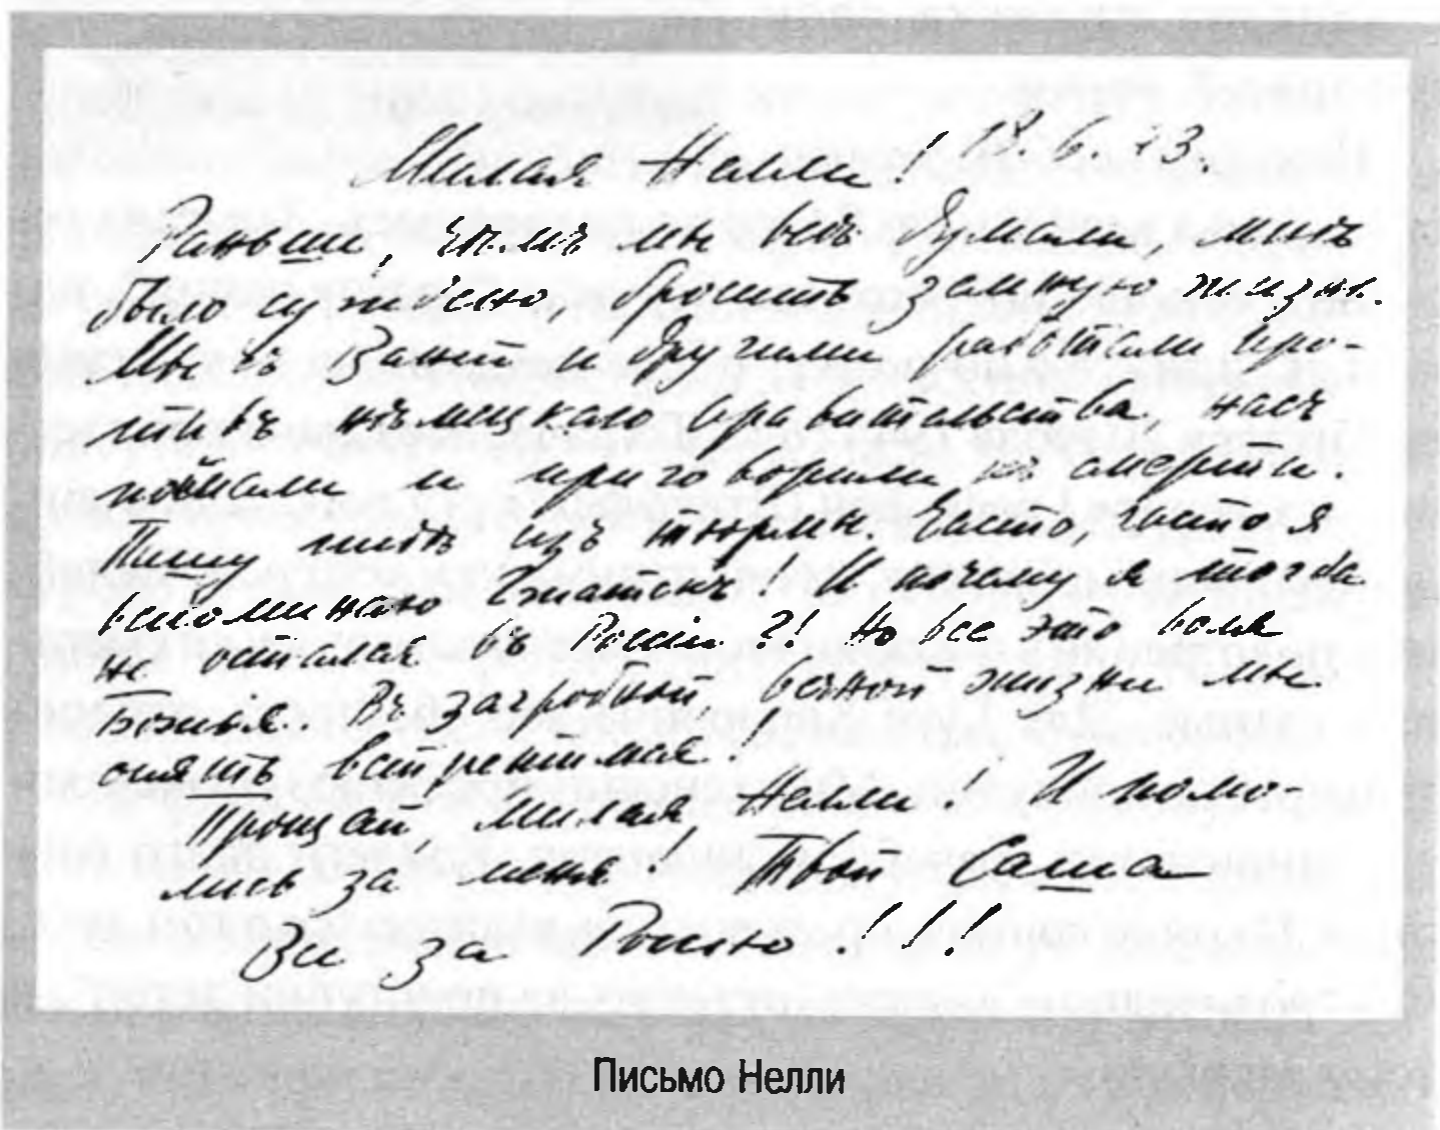 Милая Нелли! 18.6.43.
Раньше, чѣмъ мы всѣ думали, мнѣ
было суждено, бросить земную жизнь.
Мы съ Ваней и другими работали про-
тивъ нѣмецкаго правительства, насъ
поймали и приговорили къ смерти.
Пишу тебѣ изъ тюрмы. Часто, часто я
вспоминаю Гжатскъ! И почему я тогда
не остался въ Россіи?! Но все это воля
Божья. Въ загробной, вечной жизни мы
опять встретимся!
Прощай, милая Нелли! И помо-
лись за меня! Твой Саша
Все за Россію!!!
Письмо Нелли